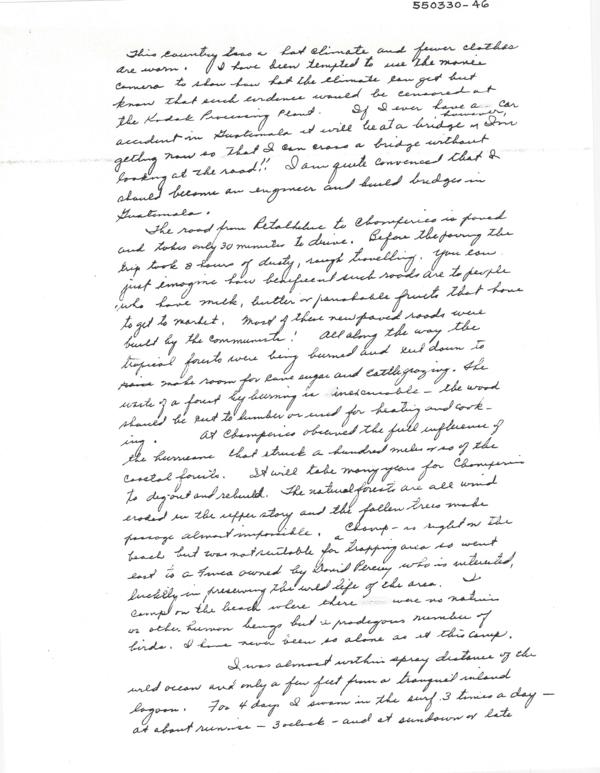 550330-46
This country has a hot climate and fewer clothes
are worn. I have been tempted to use the movie
camera to show how hot the climate can get but
know that such evidence would be censored at
the Kodak Processing Plant. If I ever have a car
accident in Guatemala it will be at a bridge, however, I'm
getting now so that I can cross a bridge without
looking at the road!! I am quite convinced that I
should become an engineer and build bridges in
Guatemala.
The road from Retalhuleu to Champerico is paved
and takes only 30 minutes to drive. Before the paving the
trip took 8 hours of dusty, rough travelling. You can
just imagine how beneficent such roads are to people
who have milk, butter or perishable fruits that have
to get to market. Most of these new paved roads were
built by the communists! All along the way the
tropical forests were being burned and cut down to
make room for cane sugar and cattle grazing. The
waste of a forest by burning is inexcusable - the wood
should be cut to lumber or used for heating and cook-
ing. At Champerico observed the full influence of
the hurricane that struck a hundred miles or so of the
coastal forests. It will take many years for Champerico
to dig out and rebuild. The natural forests are all wind
eroded in the upper story and the fallen trees make
passage almost impossible. Champ - is right on the
beach but was not suitable for a trapping area so went
east to a finca owned by David Percey who is interested,
luckily in preserving the wild life of the area. I
camp on the beach where there were no natives
or other human beings but a prodegous number of
birds. I have never been so alone as at this camp.
I was almost within spray distance of the
wild ocean and only a few feet from a tranquil inland
lagoon. For 4 days I swam in the surf 3 times a day -
at about sunrise - 3 oclock - and at sundown or late